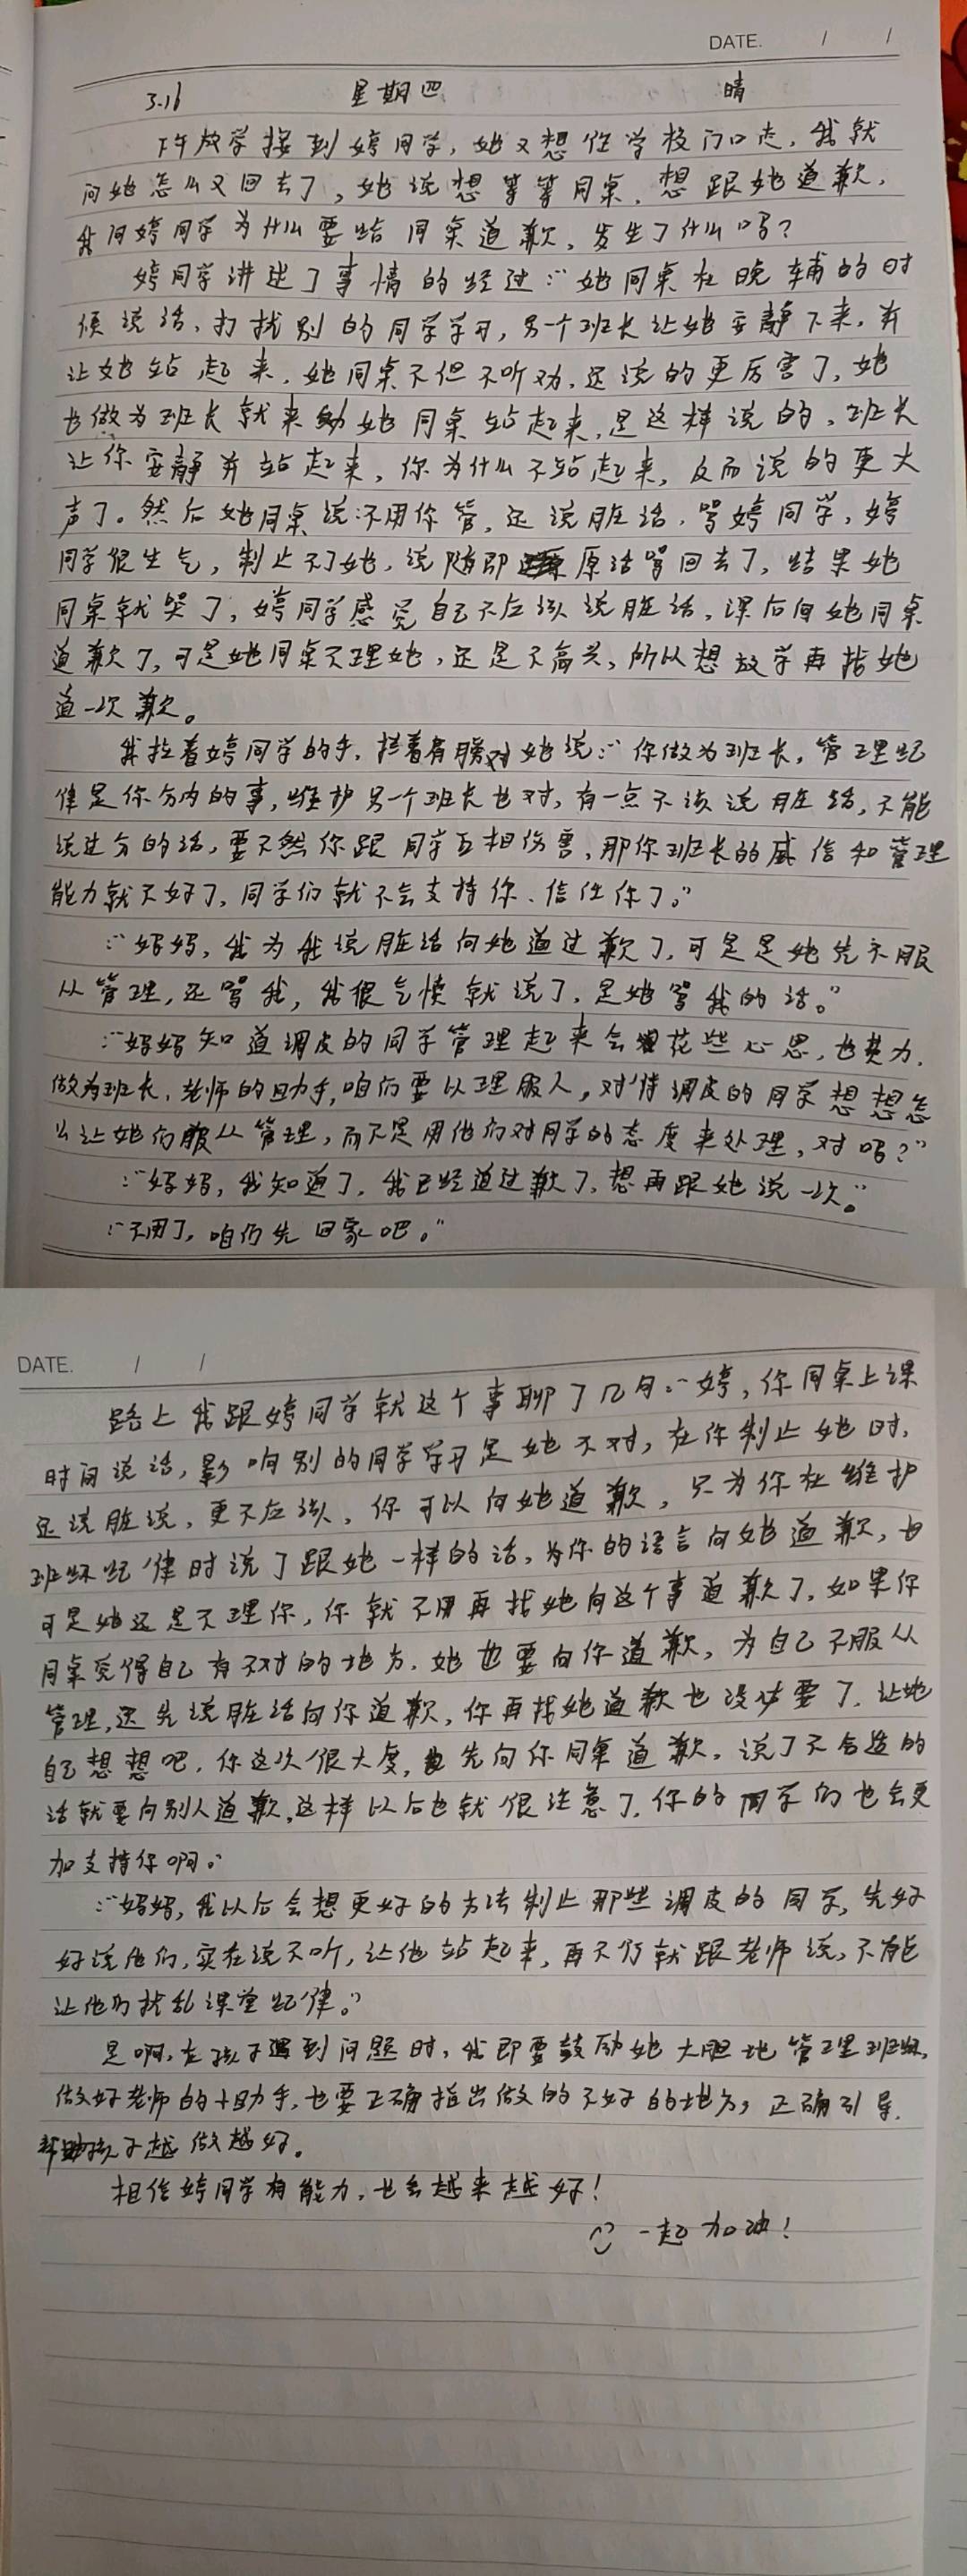 DATE. / /
3.16 星期四 晴
下午放学接到婷同学，她又想往学校门口走，我就
问她怎么又回去了，她说想等等同桌，想跟她道歉，
我问婷同学为什么要给同桌道歉，发生了什么吗？
婷同学讲述了事情的经过：“她同桌在晚辅的时
候说话，打扰别的同学学习，另一个班长让她安静下来，并
让她站起来，她同桌不但不听劝，还说的更厉害了，她
也做为班长就来劝她同桌站起来，是这样说的，班长
让你安静并站起来，你为什么不站起来，反而说的更大
声了。然后她同桌说：不用你管，还说脏话，骂婷同学，婷
同学很生气，制止不了她，说随即原话骂回去了，结果她
同桌就哭了，婷同学感觉自己不应该说脏话，课后向她同桌
道歉了，可是她同桌不理她，还是不高兴，所以想放学再找她
道一次歉。
我拉着婷同学的手，搭着肩膀对她说：“你做为班长，管理纪
律是你分内的事，维护另一个班长也对，有一点不该说脏话，不能
说过分的话，要不然你跟同学互相伤害，那你班长的威信和管理
能力就不好了，同学们就不会支持你、信任你了。”
：“妈妈，我为我说脏话向她道过歉了，可是是她先不服
从管理，还骂我，我很气愤就说了，是她骂我的话。”
：“妈妈知道调皮的同学管理起来会花些心思，也费力，
做为班长，老师的助手，咱们要以理服人，对待调皮的同学想想怎
么让她们服从管理，而不是用他们对同学的态度来处理，对吗？”
：“妈妈，我知道了，我已经道过歉了，想再跟她说一次。”
：“不用了，咱们先回家吧。”
DATE. / /
路上我跟婷同学就这个事聊了几句：“婷，你同桌上课
时间说话，影响别的同学学习是她不对，在你制止她时，
还说脏说，更不应该，你可以向她道歉，只为你在维护
班级纪律时说了跟她一样的话，为你的语言向她道歉，也
可是她还是不理你，你就不用再找她向这个事道歉了，如果你
同桌觉得自己有不对的地方，她也要向你道歉，为自己不服从
管理，还先说脏话向你道歉，你再找她道歉也没必要了，让她
自己想想吧，你这次很大度，先向你同桌道歉，说了不合适的
话就要向别人道歉，这样以后也就很注意了，你的同学们也会更
加支持你啊。”
：“妈妈，我以后会想更好的方法制止那些调皮的同学，先好
好说他们，实在说不听，让他站起来，再不行就跟老师说，不能
让他们扰乱课堂纪律。”
是啊，在孩子遇到问题时，我即要鼓励她大胆地管理班级，
做好老师的小助手，也要正确指出做的不好的地方，正确引导，
帮助孩子越做越好。
相信婷同学有能力，也会越来越好！
一起加油！